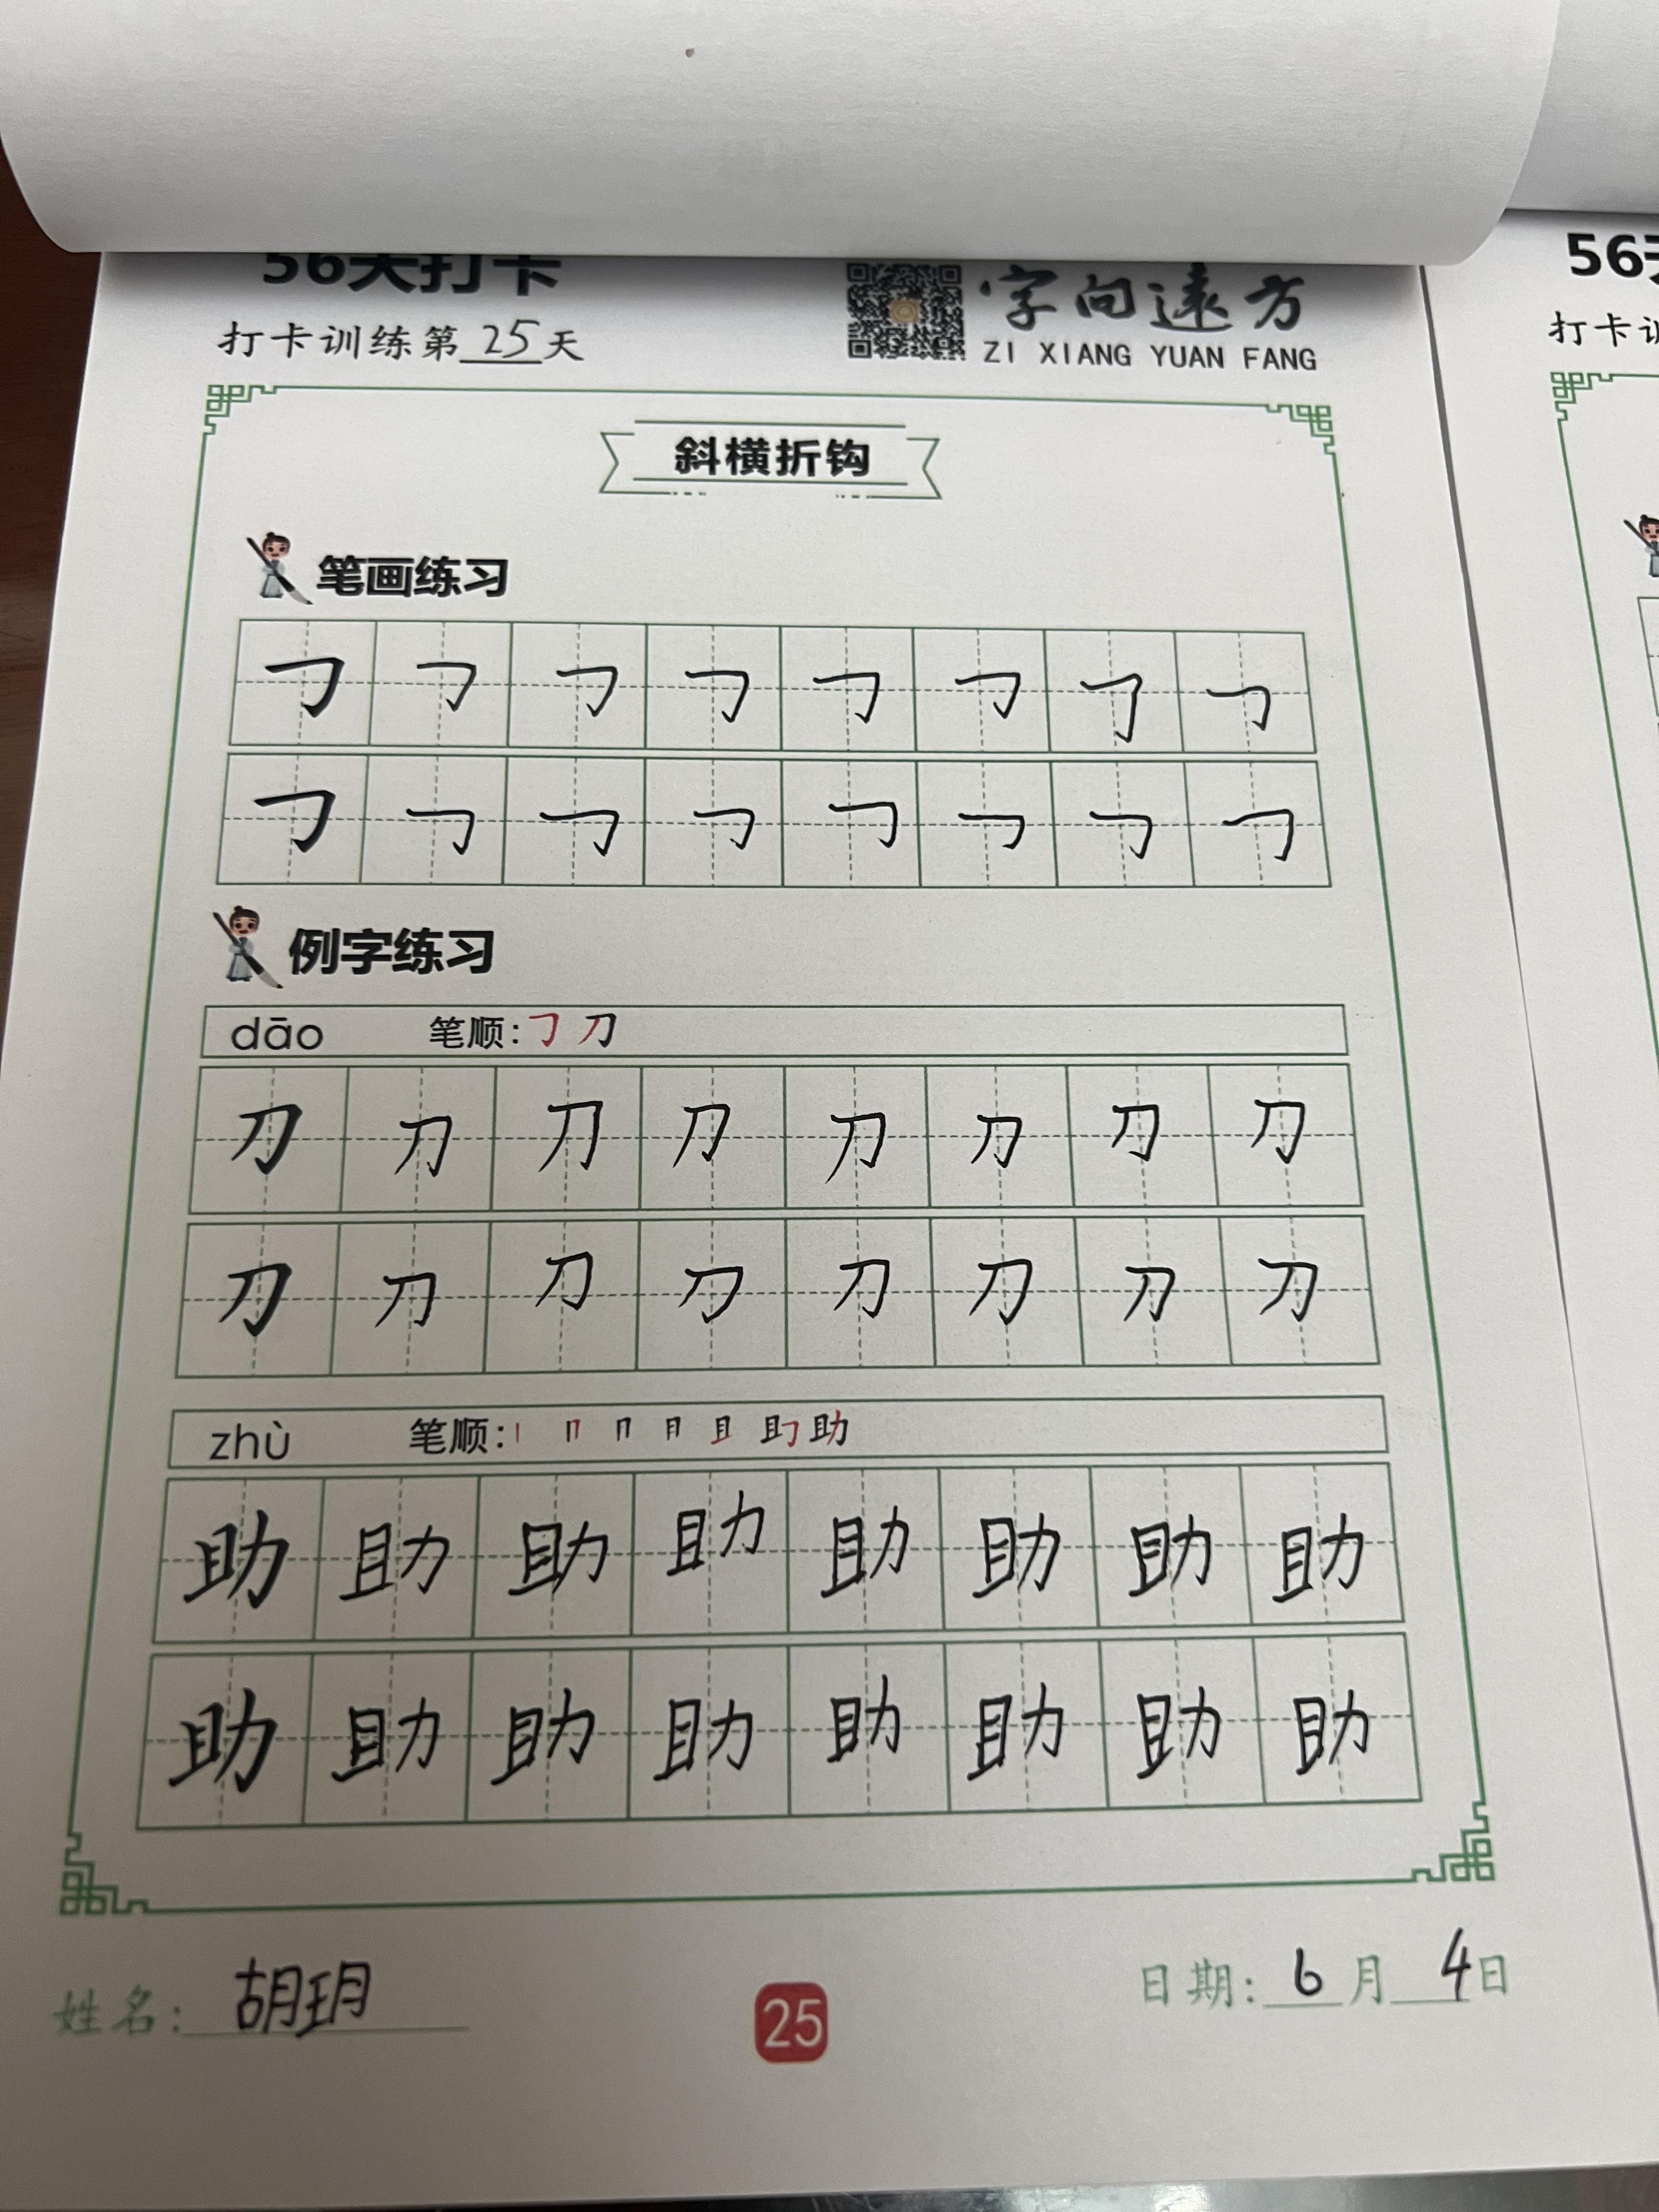 56天打卡
打卡训练第25天
字向远方
ZI XIANG YUAN FANG
斜横折钩
笔画练习
𠃌 𠃌 𠃌 𠃌 𠃌 𠃌 𠃌 𠃌
𠃌 𠃌 𠃌 𠃌 𠃌 𠃌 𠃌 𠃌
例字练习
dāo 笔顺: 𠃌 刀
刀 刀 刀 刀 刀 刀 刀 刀
刀 刀 刀 刀 刀 刀 刀 刀
zhù 笔顺: 丨 冂 冂 月 且 助 助
助 助 助 助 助 助 助 助
助 助 助 助 助 助 助 助
姓名: 胡玥
25
日期: 6月4日
56天
打卡训